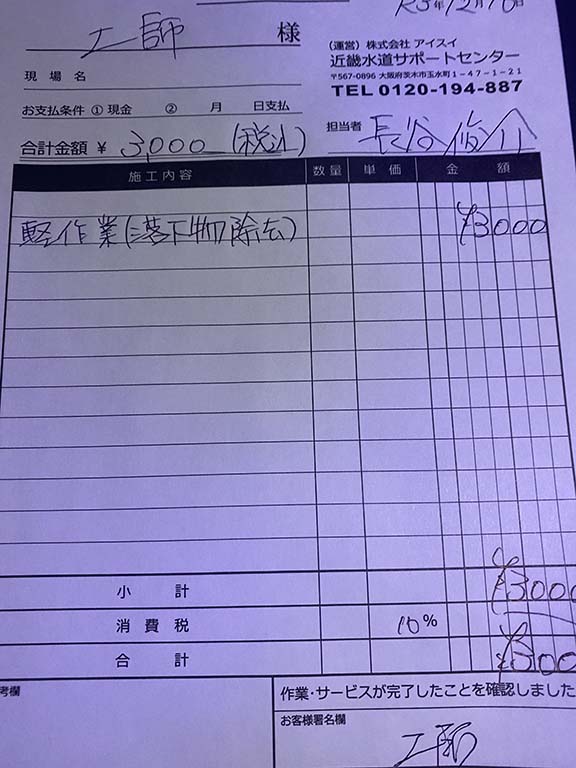 R3年12月10日
工師 様
(運営)株式会社 アイスイ
近畿水道サポートセンター
〒567-0896 大阪府茨木市玉水町1-47-1-21
TEL 0120-194-887
現場名
お支払条件 ① 現金 ② 月 日支払
担当者 長谷俊介
合計金額 ¥ 3,000 (税込)
施工内容 数量 単価 金 額
軽作業(落下物除去) ¥3000
小 計 ¥3000
消費税 10%
合 計 ¥300
考欄
作業・サービスが完了したことを確認しました
お客様署名欄
工師